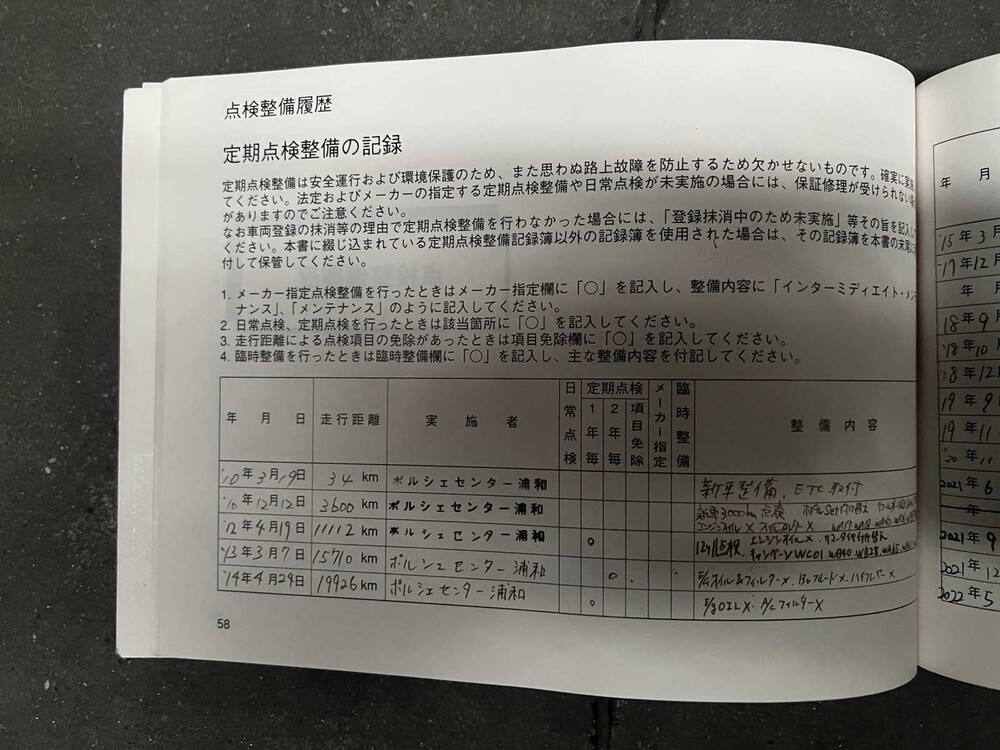 点検整備履歴
定期点検整備の記録
定期点検整備は安全運行および環境保護のため、また思わぬ路上故障を防止するため欠かせないものです。確実に実施
てください。法定およびメーカーの指定する定期点検整備や日常点検が未実施の場合には、保証修理が受けられない場合
がありますのでご注意ください。
なお車両登録の抹消等の理由で定期点検整備を行わなかった場合には、「登録抹消中のため未実施」等その旨を記入し
ください。本書に綴じ込まれている定期点検整備記録簿以外の記録簿を使用された場合は、その記録簿を本書の末尾に
付して保管してください。
1. メーカー指定点検整備を行ったときはメーカー指定欄に「〇」を記入し、整備内容に「インターミディエイト・メンテ
ナンス」、「メンテナンス」のように記入してください。
2. 日常点検、定期点検を行ったときは該当箇所に「〇」を記入してください。
3. 走行距離による点検項目の免除があったときは項目免除欄に「〇」を記入してください。
4. 臨時整備を行ったときは臨時整備欄に「〇」を記入し、主な整備内容を付記してください。
年 月 日 走行距離 実施者 日常点検 定期点検 1年毎 2年毎 項目免除 メーカー指定 臨時整備 整備内容
'10年3月19日 34 km ポルシェセンター浦和 新車整備. ETC取付
'10年12月12日 3600 km ポルシェセンター浦和 新車3000km点検
エンジンオイルX
'12年4月19日 11112 km ポルシェセンター浦和 〇 12ヶ月点検. エンジンオイルX
WC01. WB40. WB28.
'13年3月7日 15710 km ポルシェセンター浦和 〇 オイル&フィルターX.
'14年4月24日 19926 km ポルシェセンター浦和 〇 E/gOIL X. A/CフィルターX
58
年 月
'15年3月
'17年12月
年 月
18年9月
'18年10月
'18年12月
19年9月
19年11
'20年11
2021年6
年
2021年9
2021年12
2022年5